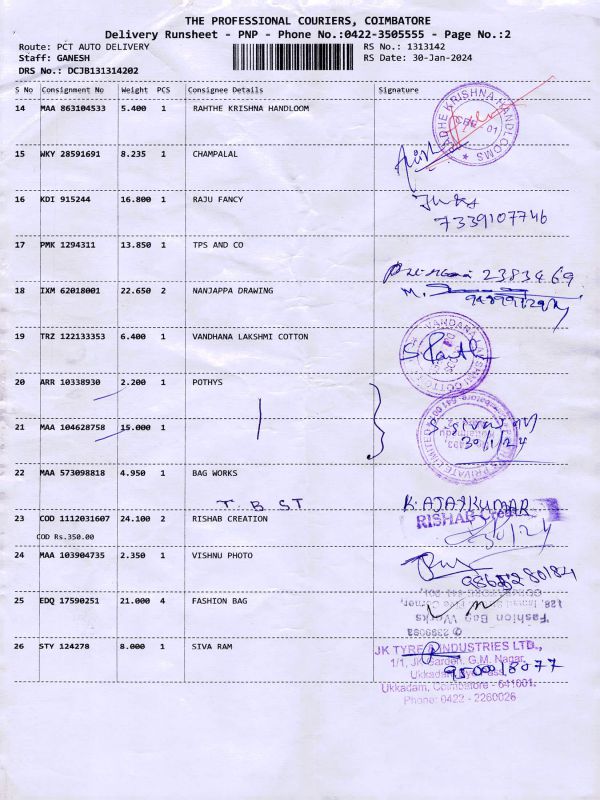 THE PROFESSIONAL COURIERS, COIMBATORE
Delivery Runsheet - PNP - Phone No.:0422-3505555 - Page No.:2
Route: PCT AUTO DELIVERY RS No.: 1313142
Staff: GANESH RS Date: 30-Jan-2024
DRS No.: DCJB131314202
S No Consignment No Weight PCS Consignee Details Signature
14 MAA 863104533 5.400 1 RAHTHE KRISHNA HANDLOOM
RADHE KRISHNA HANDLOOMS
15 WKY 28591691 8.235 1 CHAMPALAL
16 KDI 915244 16.800 1 RAJU FANCY
7339107746
17 PMK 1294311 13.850 1 TPS AND CO
2383469
18 IXM 62018001 22.650 2 NANJAPPA DRAWING M.
19 TRZ 122133353 6.400 1 VANDHANA LAKSHMI COTTON
VANDANA LAKSHMI COTTON
20 ARR 10338930 2.200 1 POTHYS
21 MAA 104628758 15.000 1
30/1/24
PRIVATE LIMITED
22 MAA 573098818 4.950 1 BAG WORKS
T. B. S.T K. AJAYKUMAR
23 COD 1112031607 24.100 2 RISHAB CREATION RISHAB
COD Rs.350.00
24 MAA 103904735 2.350 1 VISHNU PHOTO
25 EDQ 17590251 21.000 4 FASHION BAG
Fashion Bag Works
26 STY 124278 8.000 1 SIVA RAM
JK TYRE INDUSTRIES LTD.,
1/1, JK Garden, G.M. Nagar,
Ukkadam, Coimbatore - 641001.
Phone: 0422 - 2260026